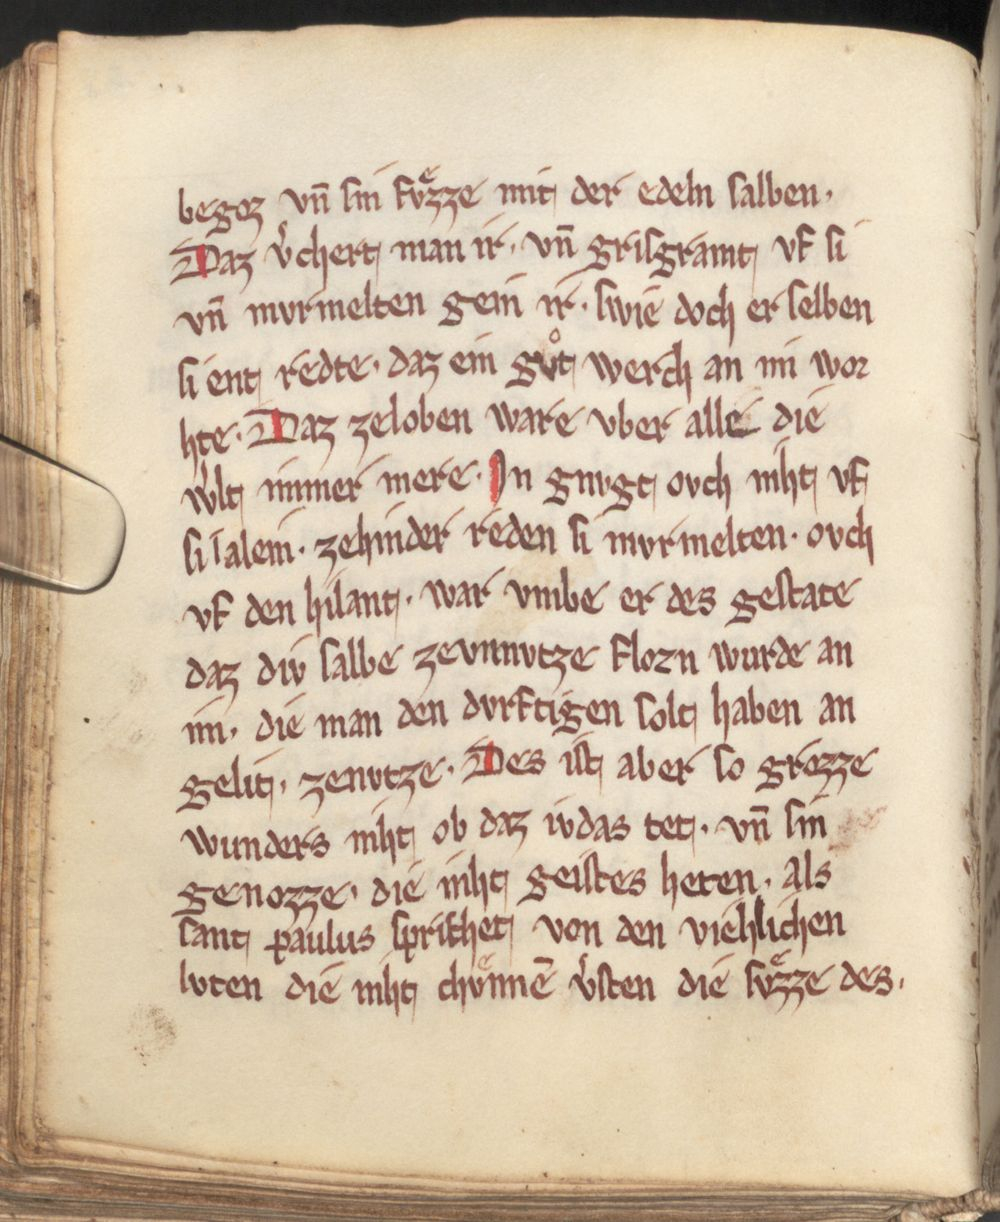 begoz vn̄ sin fvͤzze mit der edeln salben.
Daz v̓chert man ir. vn̄ grisgramt vf si
vn̄ mvrmelten gein ir. swie doch er selben
si ent redte. daz ein gvͦt werch an im wor
hte. Daz zeloben ware vber alle die
w̓lt immer mere. In gnvgt ovch niht vf
si alein. zehinder reden si mvrmelten. ovch
vf den hilant. war vmbe er des gestate
daz div salbe zevnnvtze florn wurde an
im. die man den dvrftigen solt haben an
gelit. zenvtze. Des ist aber so grozze
wunders niht ob daz ivdas tet. vn̄ sin
genozze. die niht geistes heten. als
sant paulus sprichet von den viehlichen
lvten die niht chvͤnnē v̓sten die svͤzze des.